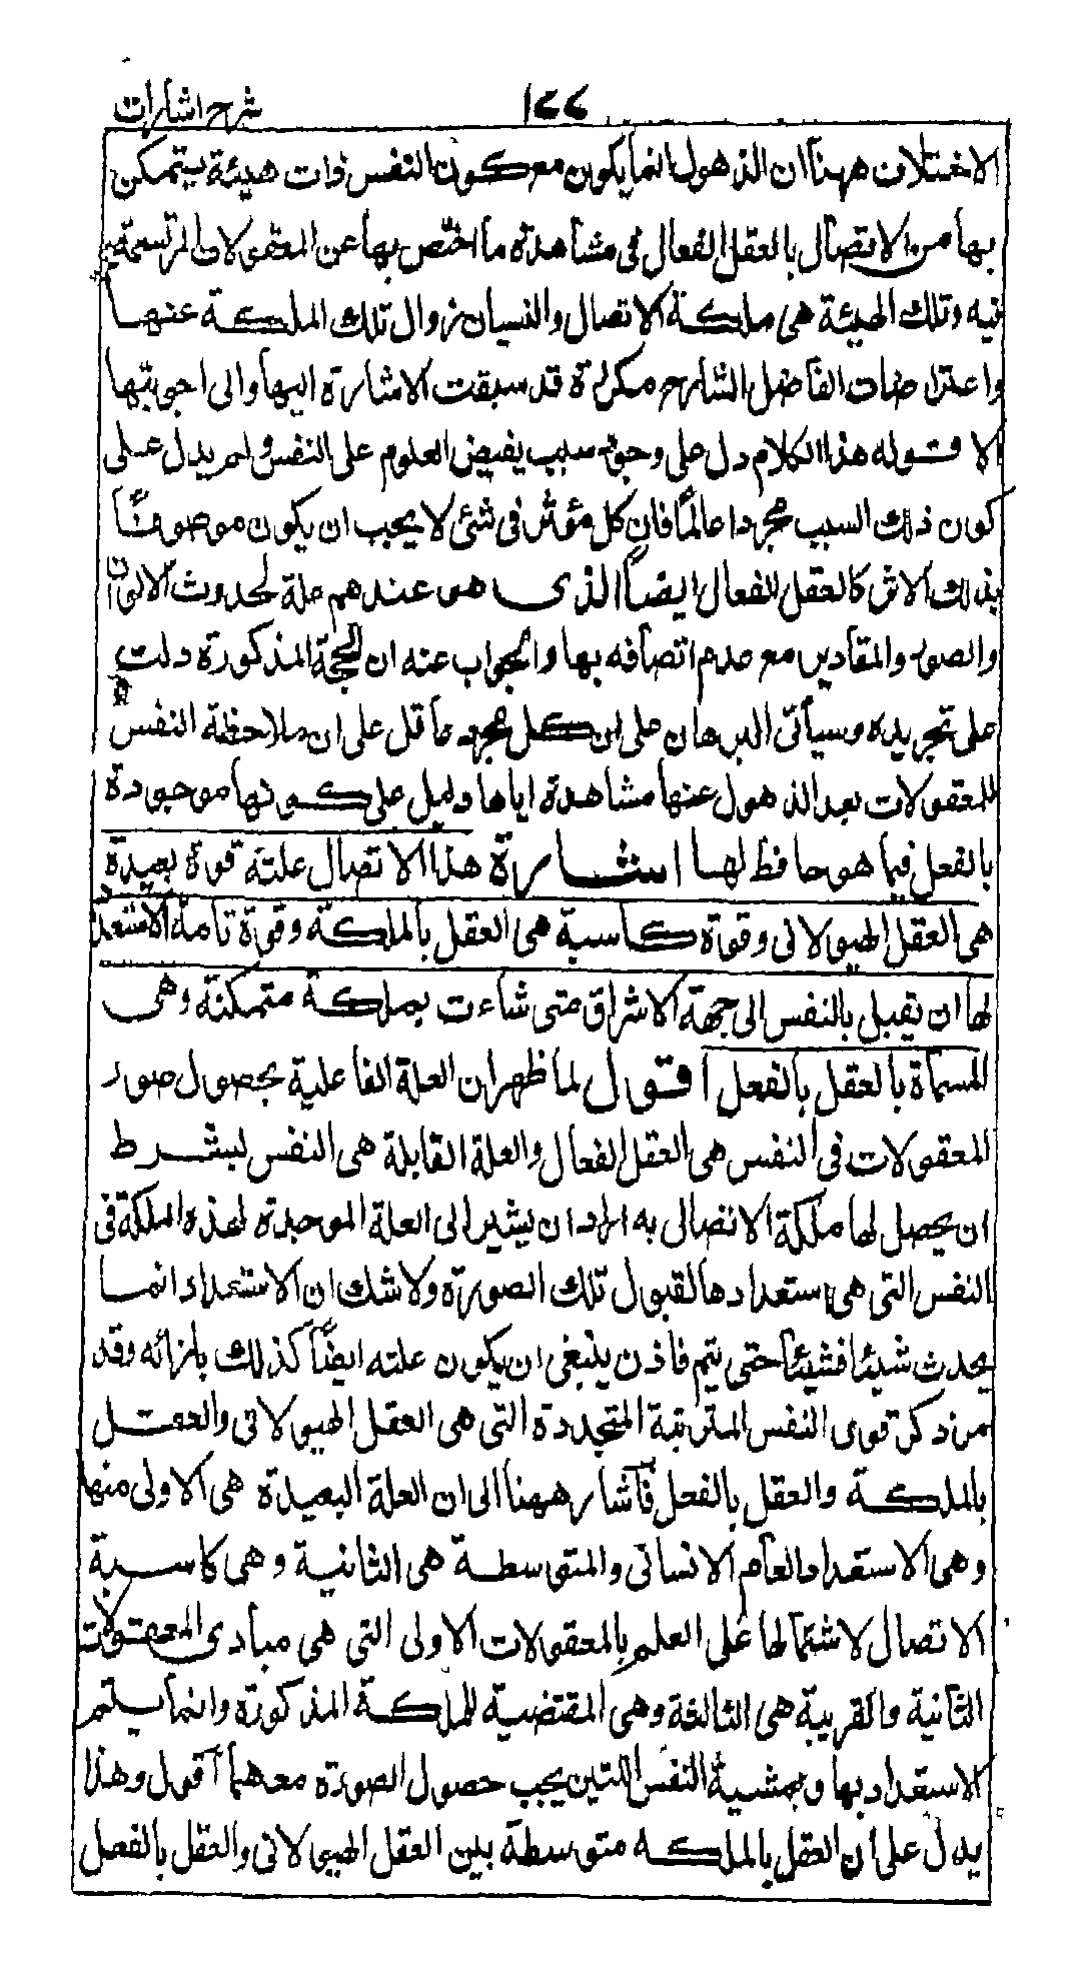 شرح اشارات
١٤٤
الاختلاف ههنا ان الذهول انما يكون مع كون النفس ذات هيئة يتمكن
بها من الاتصال بالعقل الفعال فى مشاهدة ما اختص بها عن المعقولات المرتسمة
فيه وتلك الهيئة هى ملكة الاتصال والنسيان زوال تلك الملكة عنها
واعتراضات الفاضل الشارح مكررة قد سبقت الاشارة اليها والى اجوبتها
الا قوله هذا الكلام دل على وجود سبب يفيض العلوم على النفس ولم يدل على
كون ذلك السبب مجردا عالمًا فان كل مؤثر فى شئ لا يجب ان يكون موصوفًا
بذلك الاثر كالعقل الفعال ايضًا الذى هو عندهم علة لحدوث الالوان
والصور والمقادير مع عدم اتصافه بها والجواب عنه ان الحجة المذكورة دلت
على تجريده وسيأتى البرهان على ان كل مجرد عاقل على ان ملاحظة النفس
للمعقولات بعد الذهول عنها مشاهدة اياها دليل على كونها موجودة
بالفعل فيما هو حافظ لها اشارة هذا الاتصال علته قوة بعيدة
هى العقل الهيولانى وقوة كاسبة هى العقل بالملكة وقوة تامة الاستعداد
لها ان تقبل بالنفس الى جهة الاشراق متى شاءت بملكة متمكنة وهى
المسماة بالعقل بالفعل اقول لما ظهر ان العلة الفاعلية بحصول صور
المعقولات فى النفس هى العقل الفعال والعلة القابلة هى النفس لبشرط
ان يحصل لها ملكة الاتصال به اراد ان يشير الى العلة الموجدة لهذه الملكة فى
النفس التى هى استعدادها لقبول تلك الصورة ولا شك ان الاستعداد انما
يحدث شيئًا فشيئًا حتى يتم فاذن ينبغى ان يكون علته ايضًا كذلك بازائه وقد
مر ذكر قوى النفس المترتبة المتجددة التى هى العقل الهيولانى والعقل
بالملكة والعقل بالفعل فأشار ههنا الى ان العلة البعيدة هى الاولى منها
وهى الاستعداد العام الانسانى والمتوسطة هى الثانية وهى كاسبة
الاتصال لاشتمالها على العلم بالمعقولات الاولى التى هى مبادى المعقولات
الثانية والقريبة هى الثالثة وهى المقتضية للملكة المذكورة وانما يتم
الاستعداد بها وبمشية النفس اللتين يجب حصول الصورة معهما أقول وهذا
يدل على ان العقل بالملكة متوسطة بين العقل الهيولانى والعقل بالفعل